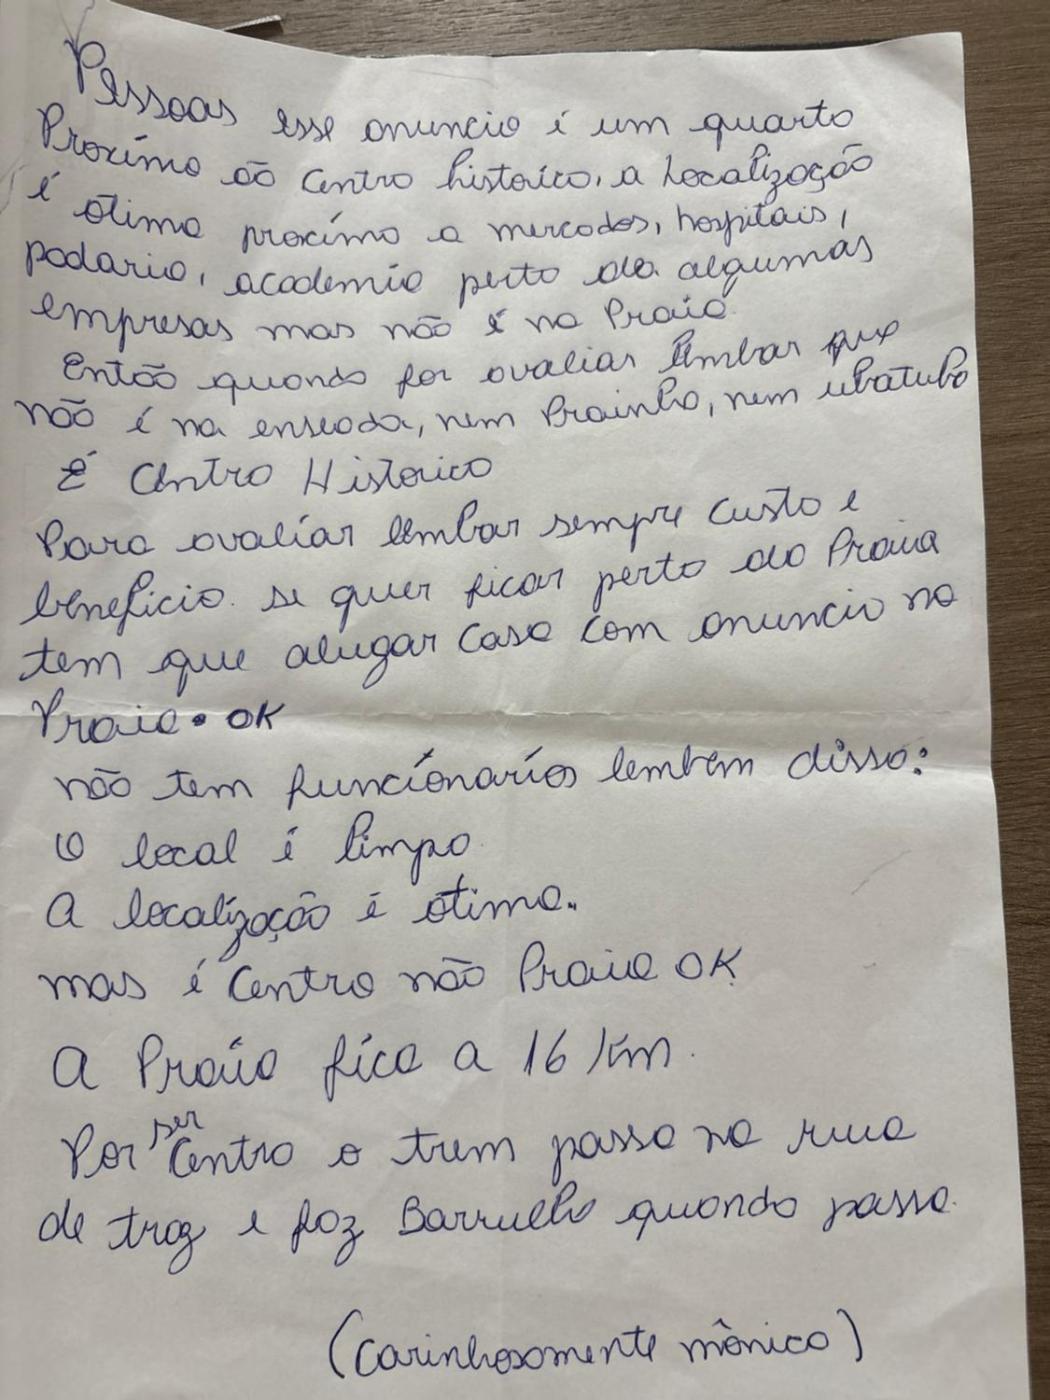 Pessoas esse anuncio é um quarto
Proximo ao centro historico, a Localização
é ótima proximo a mercados, hospitais,
padaria, academia perto de algumas
empresas mas não é na Praia
Então quando for avaliar lembar que
não é na enseada, nem Prainha, nem ubatuba
É Centro Historico
Para avaliar lembar sempre custo e
beneficio. se quer ficar perto da Praia
tem que alugar casa com anuncio na
Praia. OK
não tem funcionarios lembem disso:
O local é limpo
A localização é ótima.
mas é Centro não Praia OK
A Praia fica a 16 Km.
Por ser Centro o trem passa na rua
de traz e faz Barrulho quando passa.
(carinhosamente mônica)